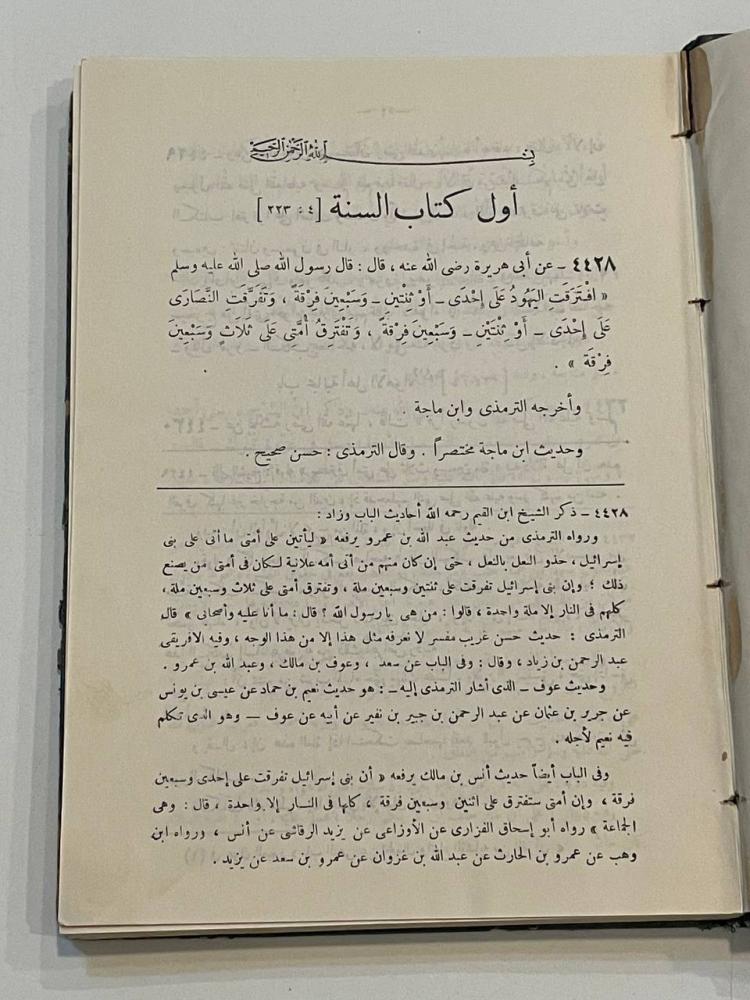 بسم الله الرحمن الرحيم
أول كتاب السنة [٤ : ٢٢٣]
٤٤٢٨ ـ عن أبى هريرة رضى الله عنه ، قال : قال رسول الله صلى الله عليه وسلم
« افْتَرَقَتِ اليَهُودُ عَلَى إِحْدَى ـ أَوْ ثِنْتَيْنِ ـ وَسَبْعِينَ فِرْقَةً ، وَتَفَرَّقَتِ النَّصَارَى
عَلَى إِحْدَى ـ أَوْ ثِنْتَيْنِ ـ وَسَبْعِينَ فِرْقَةً ، وَتَفْتَرِقُ أُمَّتِى عَلَى ثَلَاثٍ وَسَبْعِينَ
فِرْقَة » .
وأخرجه الترمذى وابن ماجة .
وحديث ابن ماجة مختصراً . وقال الترمذى : حسن صحيح .
٤٤٢٨ ـ ذكر الشيخ ابن القيم رحمه الله أحاديث الباب وزاد :
ورواه الترمذى من حديث عبد الله بن عمرو يرفعه « ليأتين على أمتى ما أتى على بنى
إسرائيل ، حذو النعل بالنعل ، حتى إن كان منهم من أتى أمه علانية لكان فى أمتى من يصنع
ذلك ؛ وإن بنى إسرائيل تفرقت على ثنتين وسبعين ملة ، وتفترق أمتى على ثلاث وسبعين ملة ،
كلهم فى النار إلا ملة واحدة ، قالوا : من هى يا رسول الله ؟ قال : ما أنا عليه وأصحابى » قال
الترمذى : حديث حسن غريب مفسر لا نعرفه مثل هذا إلا من هذا الوجه ، وفيه الافريقى
عبد الرحمن بن زياد ، وقال : وفى الباب عن سعد ، وعوف بن مالك ، وعبد الله بن عمرو .
وحديث عوف ـ الذى أشار الترمذى إليه ـ : هو حديث نعيم بن حماد عن عيسى بن يونس
عن جرير بن عثمان عن عبد الرحمن بن جبير بن نفير عن أبيه عن عوف ـ وهو الذى تكلم
فيه نعيم لأجله .
وفى الباب أيضاً حديث أنس بن مالك يرفعه « أن بنى إسرائيل تفرقت على إحدى وسبعين
فرقة ، وإن أمتى ستفترق على اثنين وسبعين فرقة ، كلها فى النار إلا واحدة ، قال : وهى
الجماعة » رواه أبو إسحاق الفزارى عن الأوزاعى عن يزيد الرقاشى عن أنس ، ورواه ابن
وهب عن عمرو بن الحارث عن عبد الله بن غزوان عن عمرو بن سعد عن يزيد .